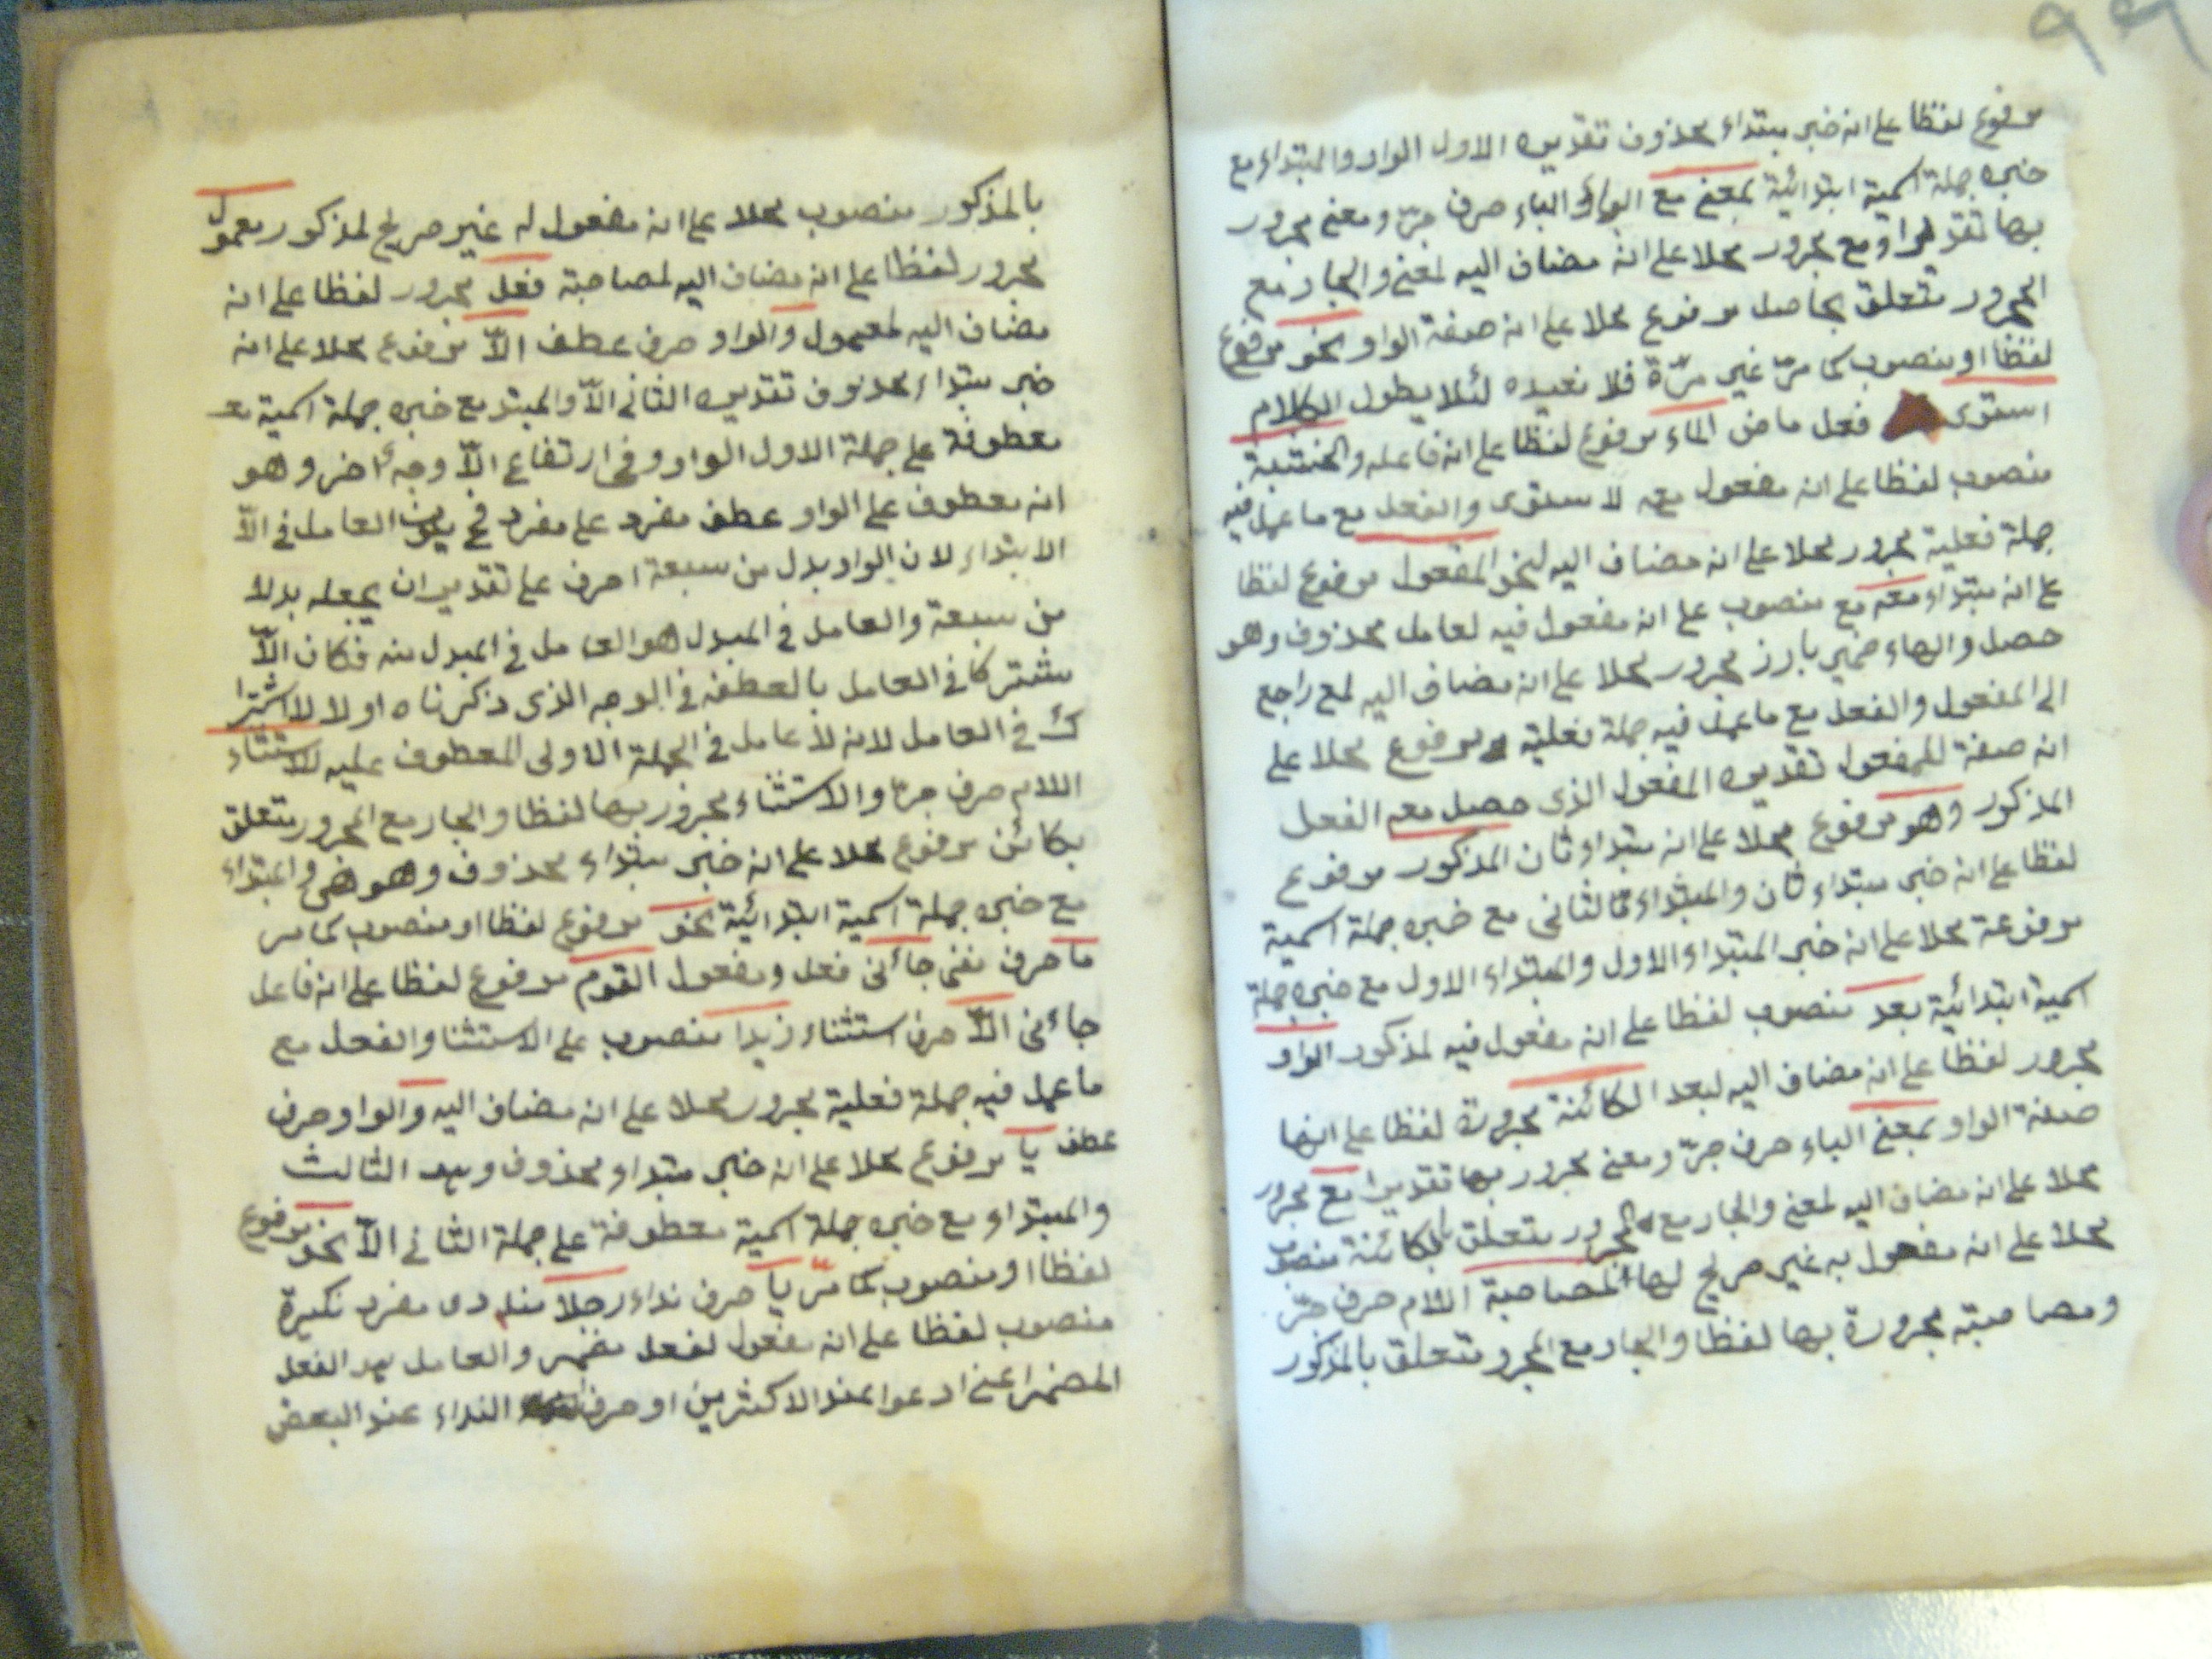 مرفوع لفظا على انه خبر مبتداء محذوف تقديره الاول الواو والمبتداء مع
خبره جملة اسمية ابتدائية بمعنى مع الواو والباء حرف جرّ ومعنى مجرور
بها تقديرا ومع مجرور محلا على انه مضاف اليه لمعنى والجار مع
المجرور متعلق بحاصل مرفوع محلا على انه صفة الواو نحو مرفوع
لفظا او منصوب كما مرّ غير مرّة فلا نعيده لئلا يطول الكلام
استوى فعل ماض الماء مرفوع لفظا على انه فاعله والخشبة
منصوب لفظا على انه مفعول معه لاستوى والفعل مع ما عمل فيه
جملة فعلية مجرور محلا على انه مضاف اليه لنحو المفعول مرفوع لفظا
على انه مبتداء معه مع منصوب على انه مفعول فيه لعامل محذوف وهو
حصل والهاء ضمير بارز مجرور محلا على انه مضاف اليه لمع راجع
الى المفعول والفعل مع ما عمل فيه جملة فعلية مرفوع محلا على
انه صفة للمفعول تقديره المفعول الذى حصل معه الفعل
المذكور وهو مرفوع محلا على انه مبتداء ثان المذكور مرفوع
لفظا على انه خبر مبتداء ثان والمبتداء الثانى مع خبره جملة اسمية
مرفوعة محلا على انه خبر المبتداء الاول والمبتداء الاول مع خبره جملة
اسمية ابتدائية بعد منصوب لفظا على انه مفعول فيه لمذكور الواو
مجرور لفظا على انه مضاف اليه لبعد الكائنة مجرورة لفظا على انها
صفة الواو بمعنى الباء حرف جرّ ومعنى مجرور بها تقديرا مع مجرور
محلا على انه مضاف اليه لمعنى والجار مع المجرور متعلق بالكائنة منصوب
محلا على انه مفعول به غير صريح لها لمصاحبة اللام حرف جرّ
ومصاحبة مجرورة بها لفظا والجار مع المجرور متعلق بالمذكور
بالمذكور منصوب محلا على انه مفعول له غير صريح لمذكور معمول
مجرور لفظا على انه مضاف اليه لمصاحبة فعل مجرور لفظا على انه
مضاف اليه لمعمول والواو حرف عطف الاّ مرفوع محلا على انه
خبر مبتداء محذوف تقديره الثانى الاّ والمبتد مع خبره جملة اسمية مع
معطوفة على جملة الاول الواو وفى ارتفاع الاّ وجه اخر وهو
انه معطوف على الواو عطف مفرد على مفرد فح يكون العامل فى الاّ
الابتداء لان الواو بدل من سبعة احرف على تقدير ان يجعله بدلا
من سبعة والعامل فى المبدل هو العامل فى المبدل منه فكان الاّ
مشتركا فى العامل بالعطف فى الوجه الذى ذكرناه اولا لا اشترا
ك فى العامل لانه لا عامل فى الجملة الاولى المعطوف عليه للاستثناء
اللام حرف جرّ والاستثناء مجرور بها لفظا والجار مع المجرور متعلق
بكائن مرفوع محلا على انه خبر مبتداء محذوف وهو هى والمبتداء
مع خبره جملة اسمية ابتدائية نحو مرفوع لفظا او منصوب كما مر
ما حرف نفى جاءنى فعل ومفعول القوم مرفوع لفظا على انه فاعل
جاءنى الاّ حرف استثناء زيدا منصوب على الاستثنا والفعل مع
ما عمل فيه جملة فعلية مجرور محلا على انه مضاف اليه والواو حرف
عطف يا مرفوع محلا على انه خبر مبتداء محذوف وهو الثالث
والمبتداء مع خبره جملة اسمية معطوفة على جملة الثانى الاّ نحو مرفوع
لفظا او منصوب كما مرّ يا حرف نداء رجلا منادى مفرد نكرة
منصوب لفظا على انه مفعول لفعل مضمر والعامل هو الفعل
المضمر اعنى ادعوا عند الاكثرين او حرف النداء عند البعض